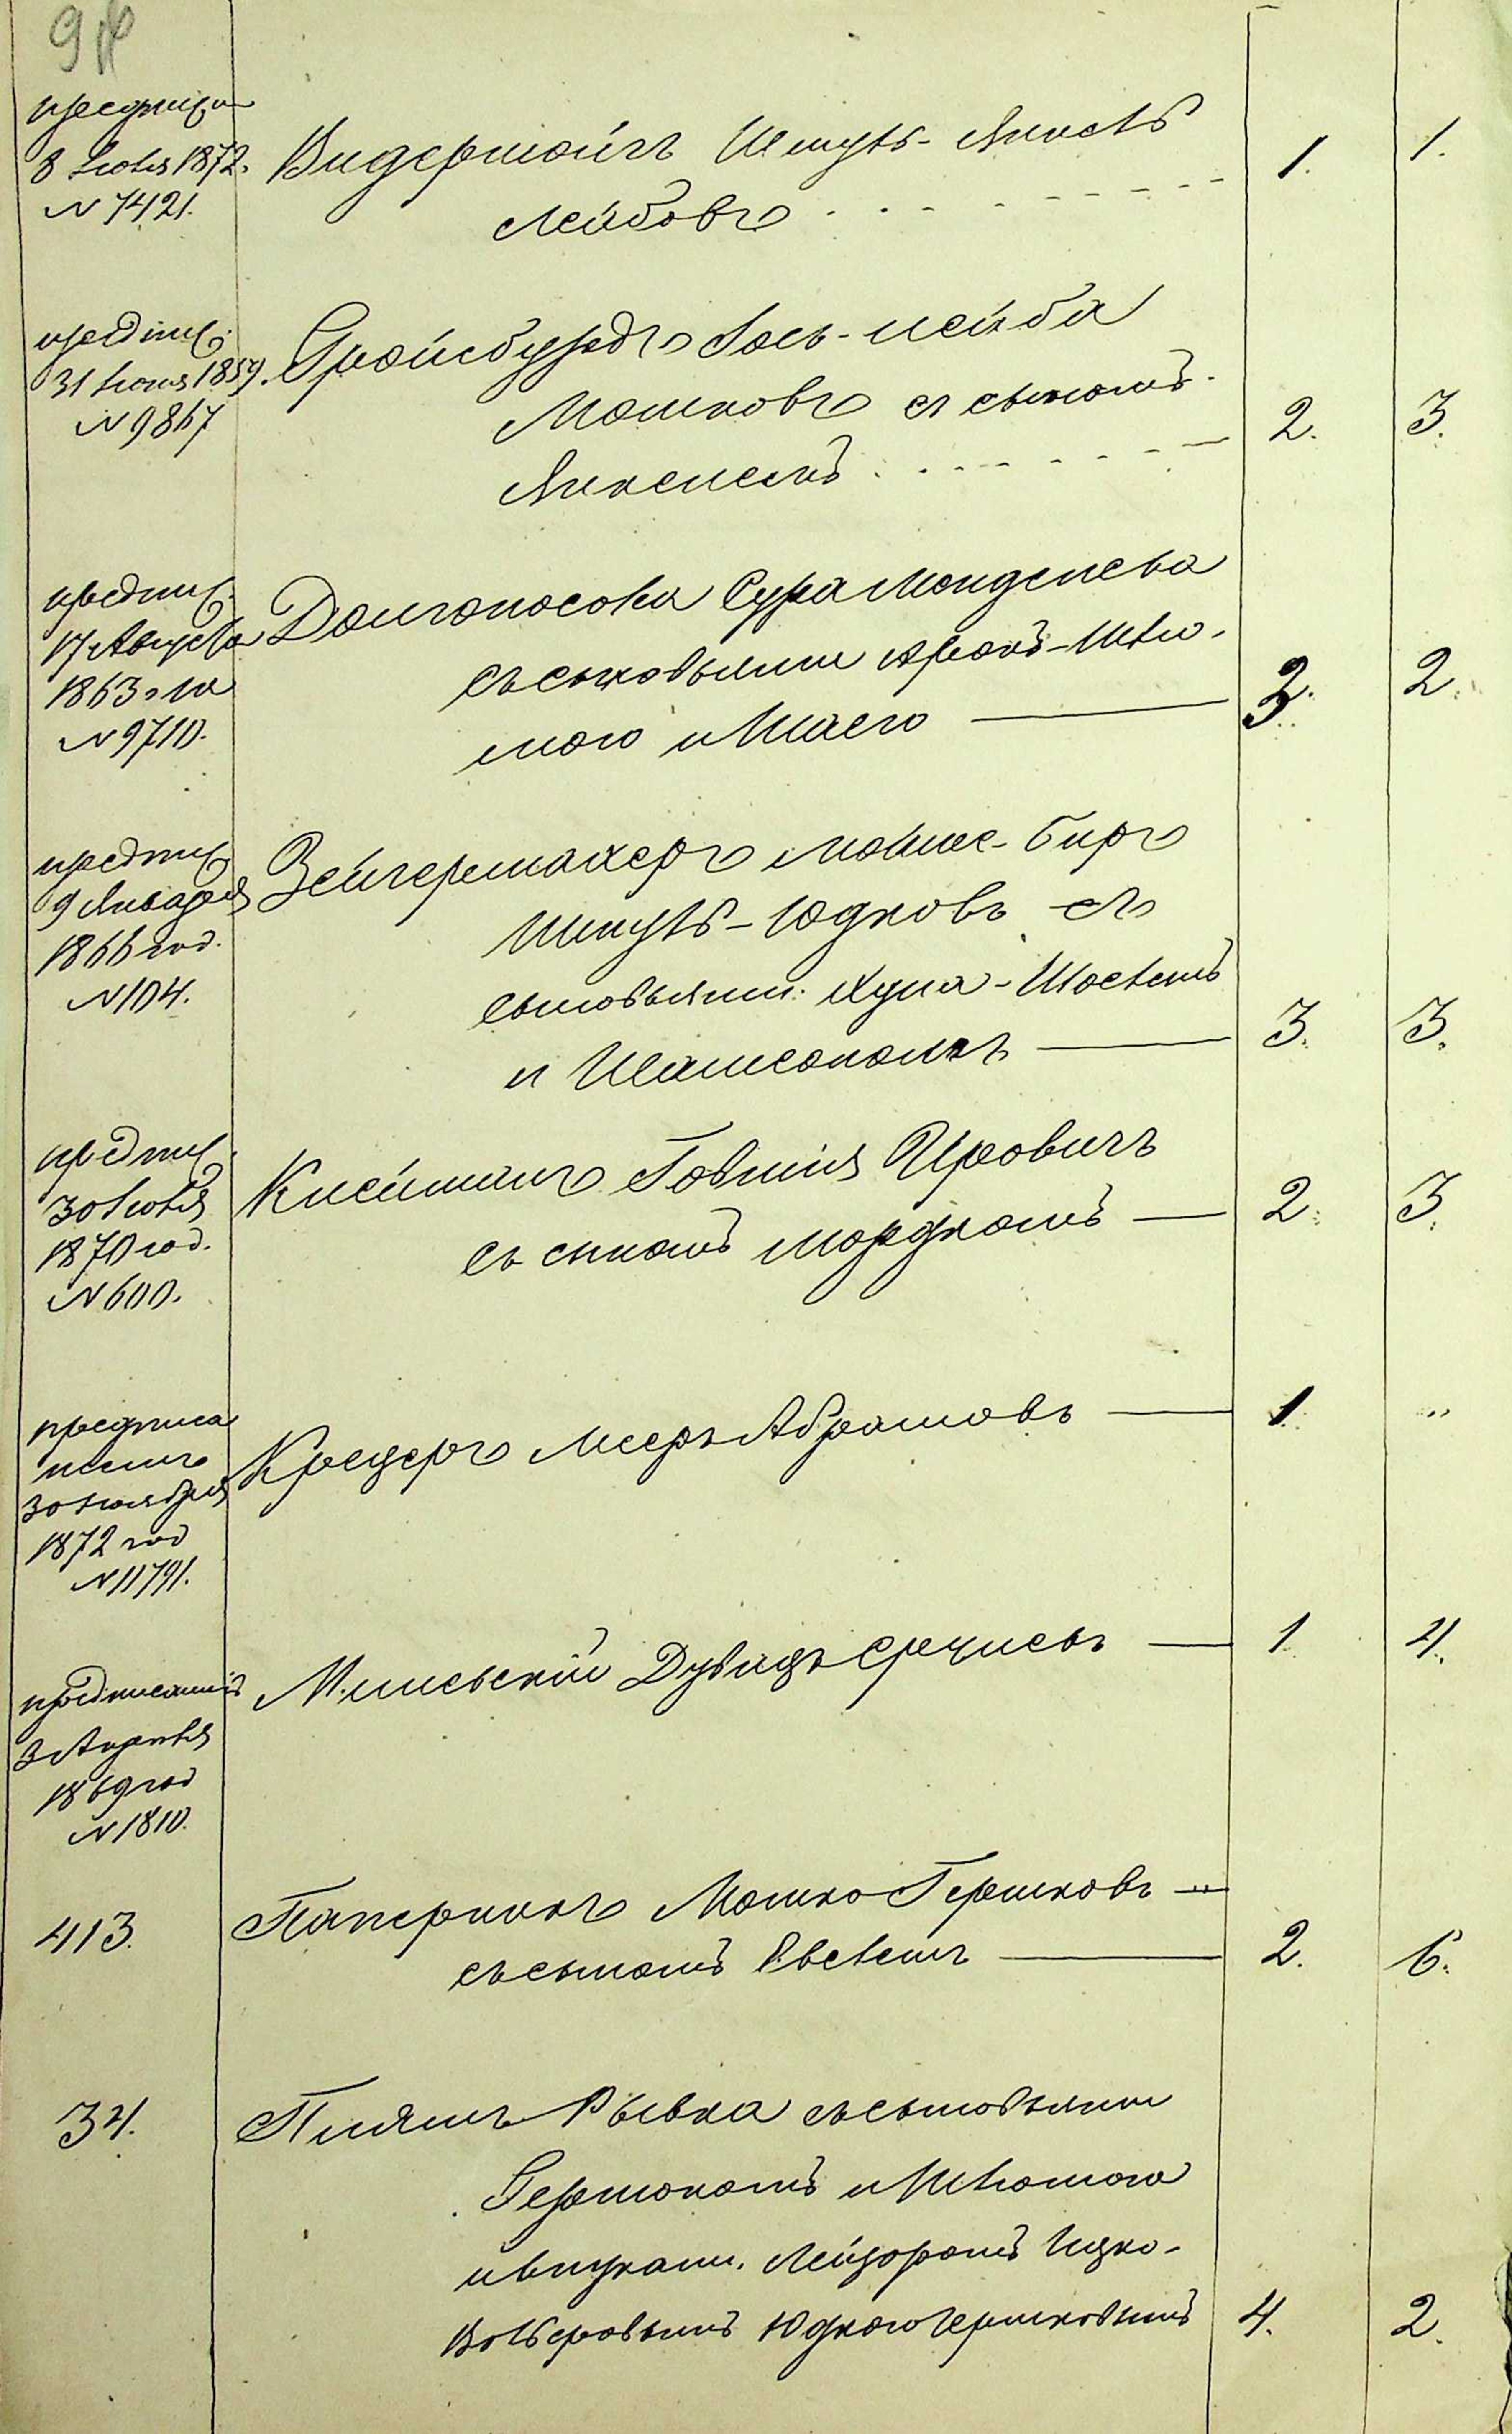 предписа
8 Іюля 1872.
N 7421.
Видерманъ Шмуль-Янкель
Лейбовъ
1. 1.
предпис.
31 Іюля 1859.
N 9867
Гройсбурдъ Іось-Лейба
Мошковъ съ сыномъ
Янкелемъ
2. 3.
предпис.
17 Августа
1863 го
N 9710.
Долгоносова Сура Мендлева
съ сыновьями Аронъ-Шлю-
мою и Шаею
3. 2.
предпис.
9 Января
1866 год.
N 104.
Зейгермахеръ Мойше-Беръ
Шмуль-Юдковъ съ
сыновьями: Хуна-Шоелемъ
и Шамсономъ
3. 3.
предпис.
30 Іюля
1870 год.
N 600.
Клейманъ Товшія Ироввичъ
съ сыномъ Мордкомъ
2. 3.
предписа
ніемъ
30 Ноября
1872 год
N 11791.
Кредеръ Мееръ Абрамовъ
1 "
предписаніе
3 Апреля
1869 год
N 1810.
Милевскій Дувидъ Сречневъ
1 4.
413.
Паперникъ Мошко Гершковъ
съ сыномъ Овелемъ
2. 6.
34.
Пилянъ Рывка съ сыновьями
Гершономъ и Шлюмою
и внуками. Лейзоромъ Ицко-
Вольфовымъ Юдкою Гершковымъ
4. 2.